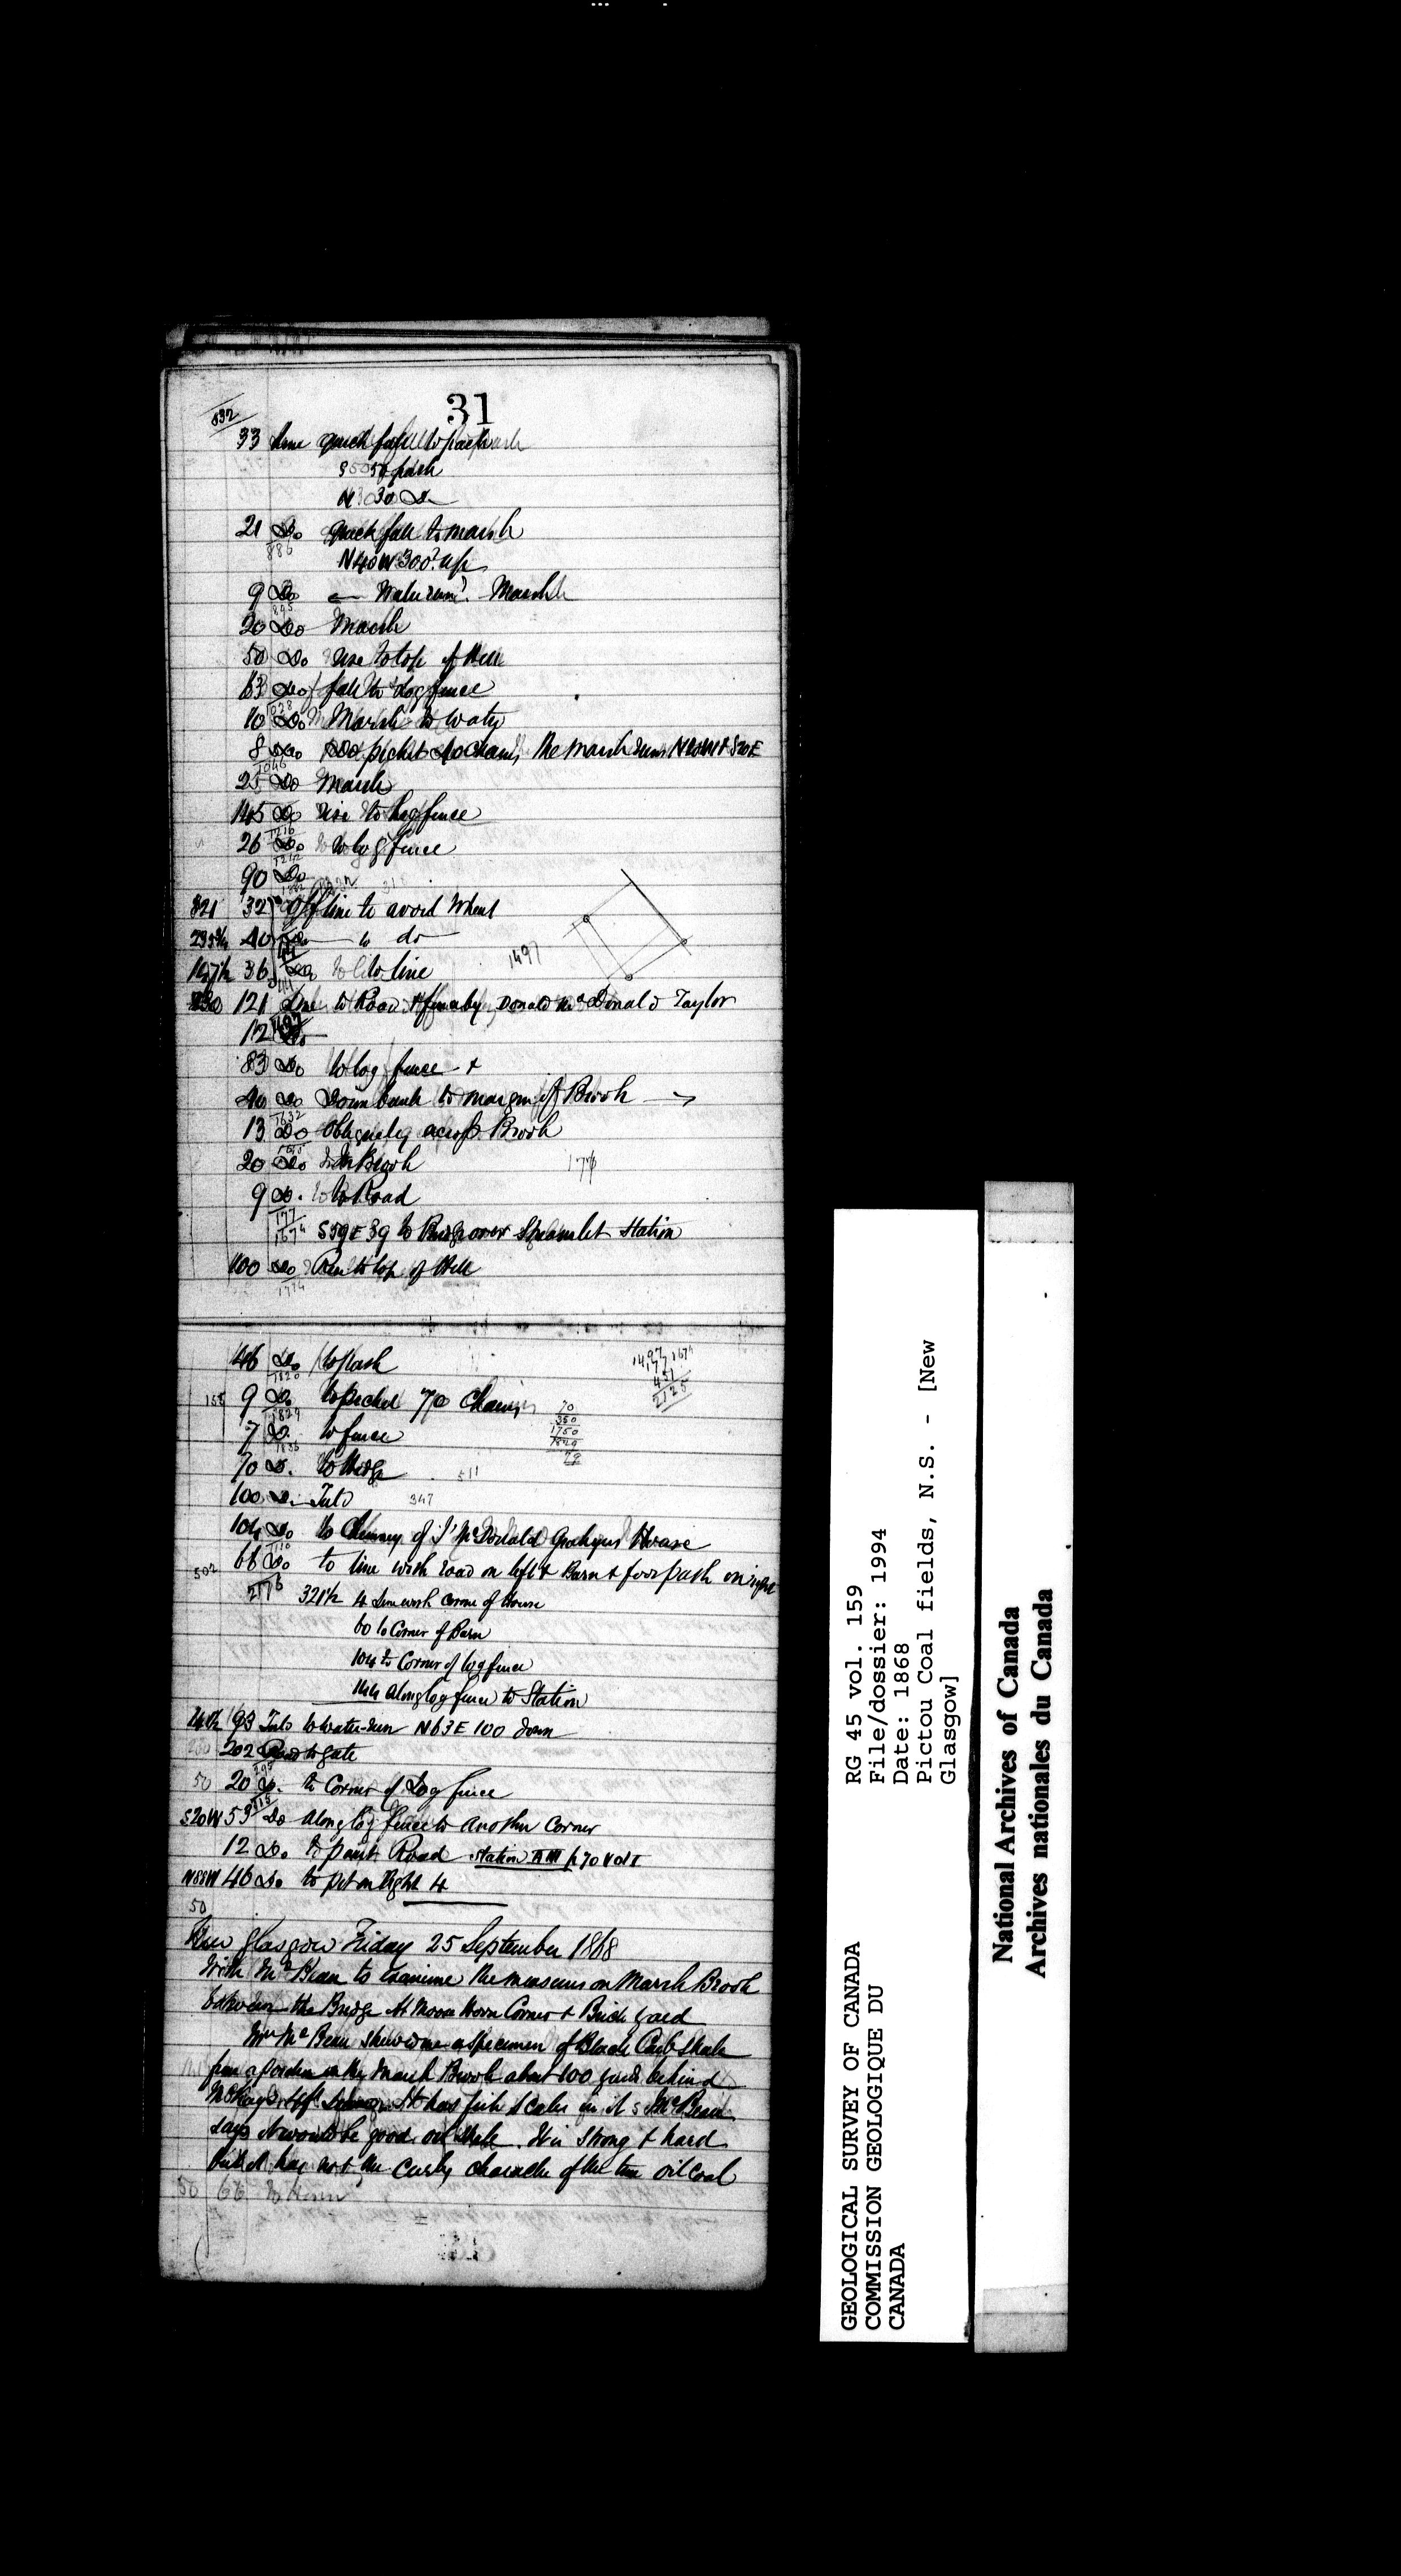 31
832
33 line quick fall to path
S 50 50 path
N 30 30 Do
21 Do quick fall to marsh
886
N40W 300? up
9 Do ← Water runs? Marsh
895
20 Do Marsh
50 Do rise to top of Hill
63 Do fall to Log fence
1028
10 Do Marsh to water
8 Do Do picket 40 chains, the marsh runs N20W & S20E
1046
25 Do Marsh
145 Do rise to log fence
1216
26 Do to log fence
1242
90 Do
1332
821 32 Off line to avoid Wheat
40 Do to do
36 Do to line
1497
121 Line to Road & fence by Donald McDonald Taylor
12 Do
83 Do to log fence +
40 Do Down bank to margin of Brook →
1632
13 Do Obliquely across Brook
20 Do to Brook
9 Do to Road
177
1674 S59E 39 to Bridge over Streamlet Station
100 Do Rise to top of Hill
1774
46 Do to path
1820
1497 1674
177
451
2125
9 Do to picket 70 Chains
1829
70
350
1750
1829
79
7 Do to fence
1836
70 Do to Hedge
511
100 Do Into
347
104 Do to Chimney of J McDonald House
1110
502 66 Do to line with road on left & Barn & foot path on right
2176 321½ 4 Line with corner of House
60 to Corner of Barn
104 to Corner of log fence
144 along log fence to Station
93 Into to water-run N63E 100 down
202 Road to gate
295
50 20 Do to Corner of Log fence
315
S20W 53 Do along log fence to another corner
12 Do to point Road Station A III p 70 Vol I
N88W 46 Do to pit on Right 4
50
New Glasgow Friday 25 September 1868
With Mr Bean to examine the measures on Marsh Brook
between the Bridge at Moose Horn Corner & Brick yard
Mr McBean shewed me a specimen of Black Carb Shale
from a portion in the Marsh Brook about 100 yards behind
McKay's It has fish scales in it & McBean
says it would be good oil shale. It is strong & hard
but it has not the curly character of the true oil coal
50 66 to
GEOLOGICAL SURVEY OF CANADA
COMMISSION GEOLOGIQUE DU
CANADA
RG 45 vol. 159
File/dossier: 1994
Date: 1868
Pictou Coal fields, N.S. - [New
Glasgow]
National Archives of Canada
Archives nationales du Canada